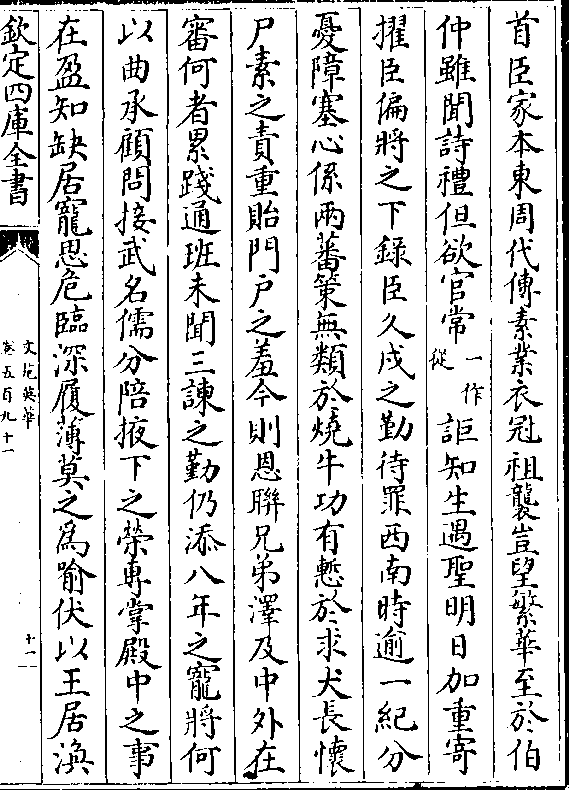 首臣家本東周代傳素業衣冠祖襲豈望繁華至於伯
仲雖聞詩禮但欲官常一作從詎知生遇聖明日加重寄
擢臣偏將之下錄臣久戍之勤待罪西南時逾一紀分
憂障塞心係兩蕃策無類於燒牛功有慙於求犬長懷
尸素之責重貽門户之羞今則恩聨兄弟澤及中外在
審何者累踐通班未聞三諫之勤仍添八年之寵將何
以曲承顧問接武名儒分陪掖下之榮專掌殿中之事
在盈知缺居寵思危臨深履薄莫之為喻伏以王居渙
欽定四庫全書
文苑英華
卷五百九十一
十一